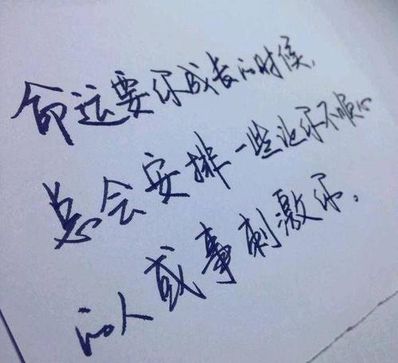 命运要你成长的时候，
总会安排一些让你不顺心
的人或事刺激你。